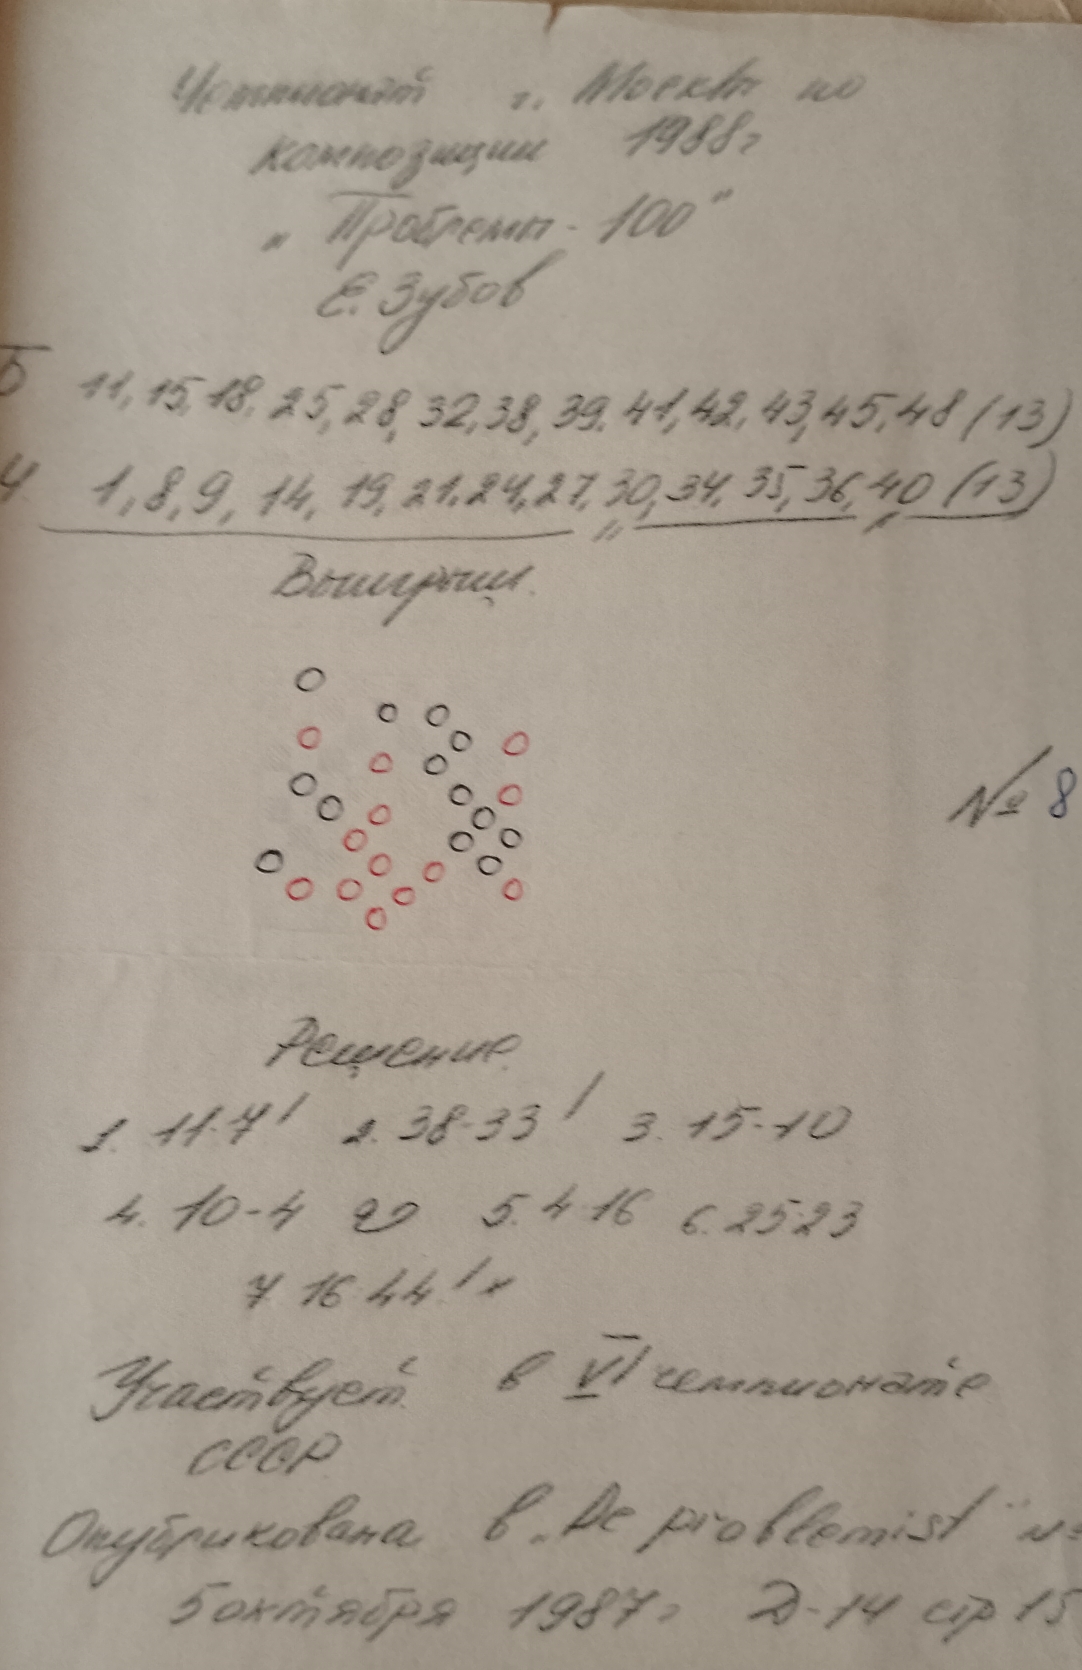 Чемпионат г. Москвы по
композиции 1988г
„Проблемы-100"
Е. Зубов
Б 11, 15, 18, 25, 28, 32, 38, 39. 41, 42, 43, 45, 48 (13)
Ч 1, 8, 9, 14, 19, 21, 24, 27, 30, 34, 35, 36, 40 (13)
Выигрыш.
№ 8
Решение
1. 11-7! 2. 38-33! 3. 15-10
4. 10-4 5. 4-16 6. 25-23
7. 16-44! x
Участвует в VI чемпионате
СССР
Опубликована в „De problemist" №
5 октября 1987г Д-14 стр 15